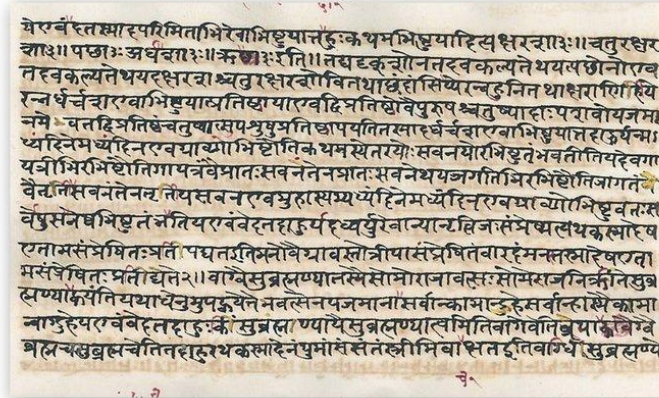 य एवंवेदतस्मादपरिमिताभिरेवाभिष्टुयात्तदाहुःकथमभिष्टुयादित्यक्षरशाः३ः॥चतुरक्षर
शाः३॥पछाः३ः अर्धर्चशाः३ः॥ऋक्शाः३ःइति॥तद्यदृक्शोनतदवकल्पतेथयत्पछोनोएव
तदवकल्पतेथयदक्षरशश्चतुरक्षरशोवितथाछंदांसिलुप्येरन्बहूनितथाक्षराणिहीये
रन्नर्धर्चशएवाभिष्टुयात्प्रतिष्ठायाएवद्विप्रतिष्ठोवैपुरुषश्चतुष्पादाःपशवोयजमा
नमेवतद्द्विप्रतिष्ठंचतुष्पात्सुपशुषुप्रतिष्ठापयतितस्मादर्धर्चशएवाभिष्टुयात्तदाहुर्यन्म
ध्यंदिनेमध्यंदिनएवग्राव्णोभिष्टौतिकथमस्येतरयोःसवनयोरभिष्टुतंभवतीतियदेवगा
यत्रीभिरभिष्टौतिगायत्रंवैप्रातःसवनंतेनप्रातःसवनेथयज्जगतीभिरभिष्टौतिजागतं
वैतृतीयसवनंतेनतृतीयसवनएवमुहास्यमध्यंदिनेमध्यंदिनएवग्राव्णोभिष्टुवतःस
र्वेषुसवनेष्वभिष्टुतंभवतियएवंवेदतदाहुर्यदध्वर्युरेवान्यानृत्विजःसंप्रेष्यत्यथकस्मादेष
एतामसंप्रेषितःप्रतिपद्यतइतिमनोवैग्रावस्तोत्रीयासंप्रेषितंवाइदंमनस्तस्मादेषएता
मसंप्रेषितःप्रतिपद्यते२॥वाग्वैसुब्रह्मण्यातस्यैसोमोराजावत्सःसोमेराजनिक्रीतेसुब्र
ह्मण्यामाह्वयंतियथाधेनुमुपह्वयेत्तेनवत्सेनयजमानायसर्वान्कामान्दुहेसर्वान्हास्मैकामा
न्वाग्दुहेयएवंवेदतदाहुःकिंसुब्रह्मण्यायैसुब्रह्मण्यात्वमितिवागेवेतिब्रूयाद्वाग्वै
ब्रह्मचसुब्रह्मचेतितदाहुरथकस्मादेनंपुमांसंसंतंस्त्रीमिवाचक्षतइतिवाग्घिसुब्रह्मण्ये